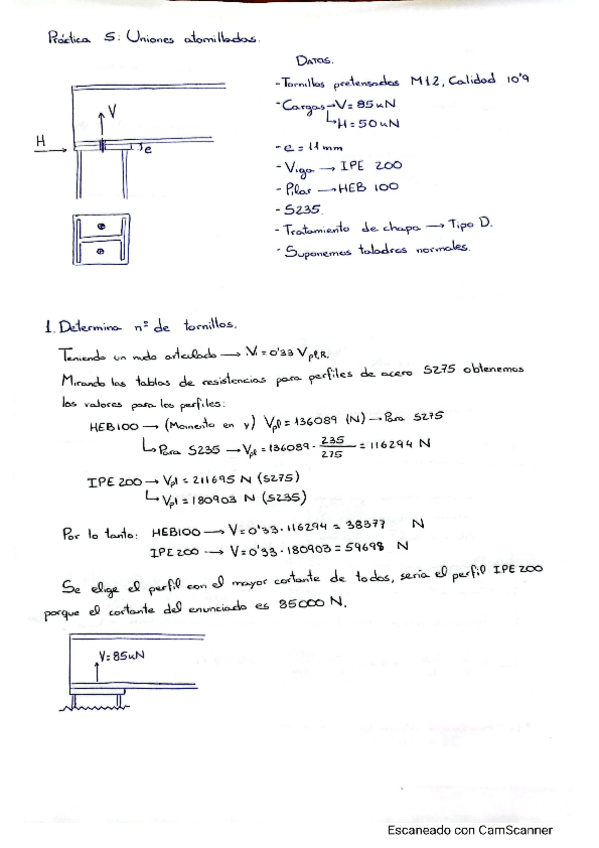 Práctica 5: Uniones atornilladas.
DATOS.
- Tornillos pretensados M12, Calidad 10'9
- Cargas → V = 85 kN
↳ H = 50 kN
- e = 11 mm
- Viga → IPE 200
- Pilar → HEB 100
- S235.
- Tratamiento de chapa → Tipo D.
- Suponemos taladros normales.
V
H
e
1. Determina nº de tornillos.
Teniendo un nudo articulado → V = 0'33 Vpl,R.
Mirando las tablas de resistencias para perfiles de acero S275 obtenemos
los valores para los perfiles:
HEB100 → (Momento en y) Vpl = 136089 (N) → Para S275
↳ Para S235 → Vpl = 136089 · 235/275 = 116294 N
IPE 200 → Vpl = 211695 N (S275)
↳ Vpl = 180903 N (S235)
Por lo tanto: HEB100 → V = 0'33 · 116294 = 38377 N
IPE 200 → V = 0'33 · 180903 = 59698 N
Se elige el perfil con el mayor cortante de todos, seria el perfil IPE 200
porque el cortante del enunciado es 85000 N.
V = 85 kN
Escaneado con CamScanner